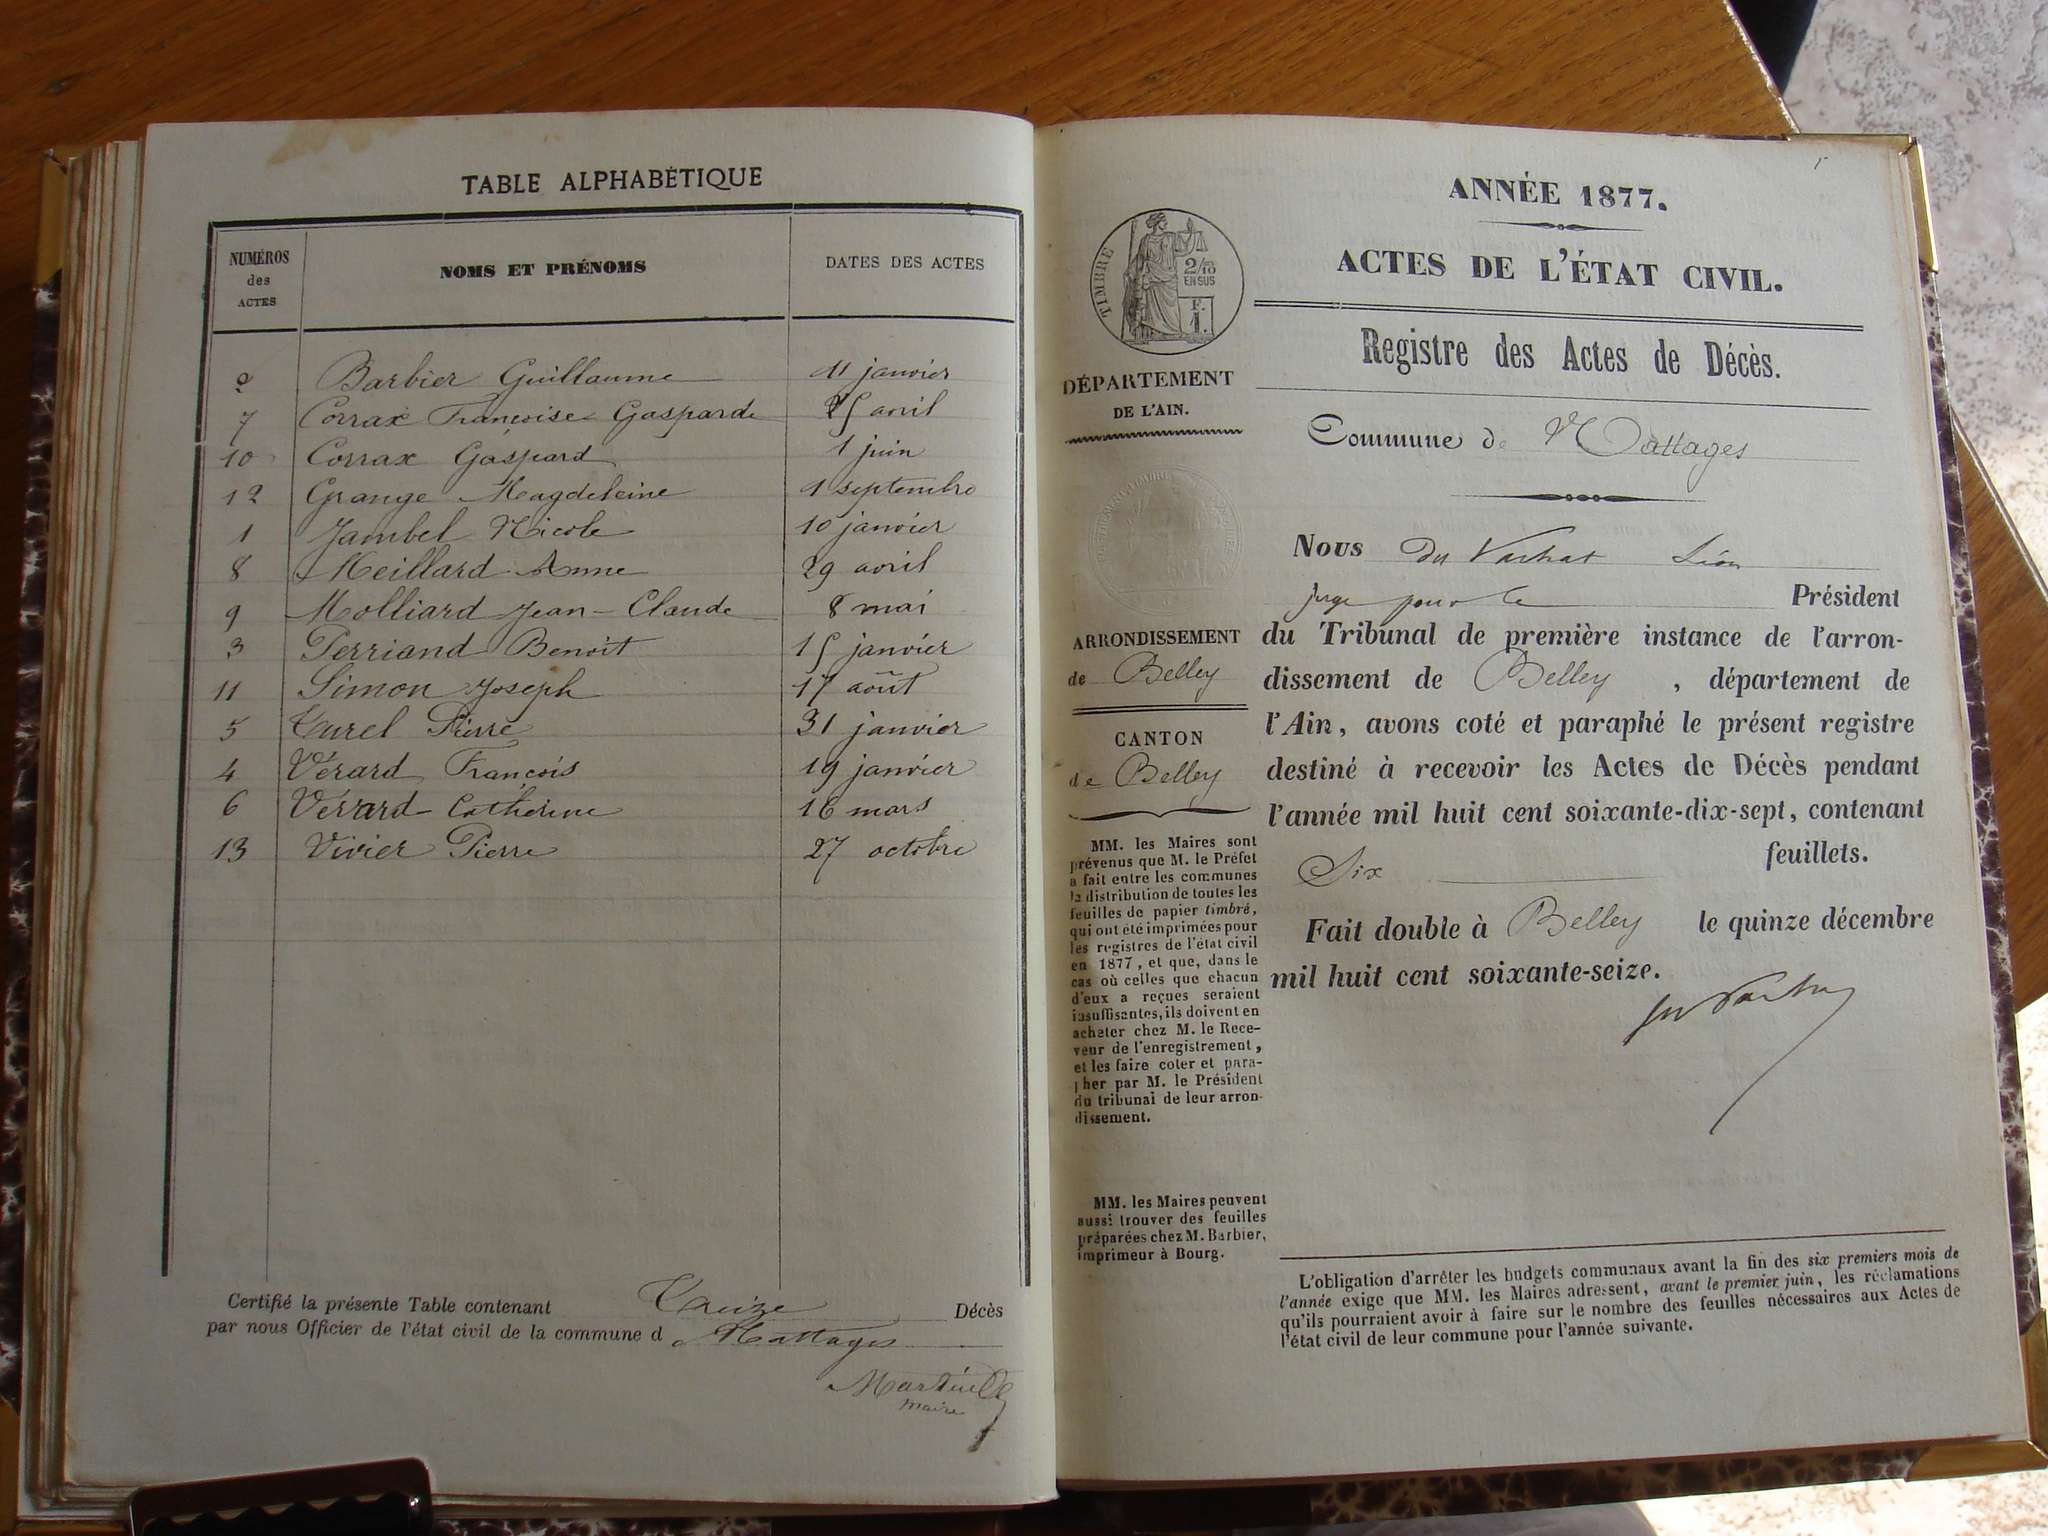 TABLE ALPHABÉTIQUE
NUMÉROS des ACTES
NOMS ET PRÉNOMS
DATES DES ACTES
2 Barbier Guillaume 11 janvier
7 Corrax Françoise Gasparde 25 avril
10 Corrax Gaspard 1 juin
12 Grange Magdeleine 1 septembre
1 Jambel Nicole 10 janvier
8 Meillard Anne 29 avril
9 Molliard Jean-Claude 8 mai
3 Perriand Benoit 15 janvier
11 Simon Joseph 17 août
5 Turel Pierre 31 janvier
4 Vérard François 19 janvier
6 Vérard Catherine 16 mars
13 Vivier Pierre 27 octobre
Certifié la présente Table contenant Treize Décès
par nous Officier de l'état civil de la commune d Nattages
maire
ANNÉE 1877.
ACTES DE L'ÉTAT CIVIL.
Registre des Actes de Décès.
Commune de Nattages
TIMBRE
2/10
EN SUS
F.
1.
DÉPARTEMENT
DE L'AIN.
ARRONDISSEMENT
de Belley
CANTON
de Belley
MM. les Maires sont
prévenus que M. le Préfet
a fait entre les communes
la distribution de toutes les
feuilles de papier timbré,
qui ont été imprimées pour
les registres de l'état civil
en 1877, et que, dans le
cas où celles que chacun
d'eux a reçues seraient
insuffisantes, ils doivent en
acheter chez M. le Rece-
veur de l'enregistrement,
et les faire coter et para-
pher par M. le Président
du tribunal de leur arron-
dissement.
MM. les Maires peuvent
aussi trouver des feuilles
préparées chez M. Barbier,
imprimeur à Bourg.
Nous Du Vachat Léon
juge pour le Président
du Tribunal de première instance de l'arron-
dissement de Belley, département de
l'Ain, avons coté et paraphé le présent registre
destiné à recevoir les Actes de Décès pendant
l'année mil huit cent soixante-dix-sept, contenant
Six feuillets.
Fait double à Belley le quinze décembre
mil huit cent soixante-seize.
L'obligation d'arrêter les budgets communaux avant la fin des six premiers mois de
l'année exige que MM. les Maires adressent, avant le premier juin, les réclamations
qu'ils pourraient avoir à faire sur le nombre des feuilles nécessaires aux Actes de
l'état civil de leur commune pour l'année suivante.